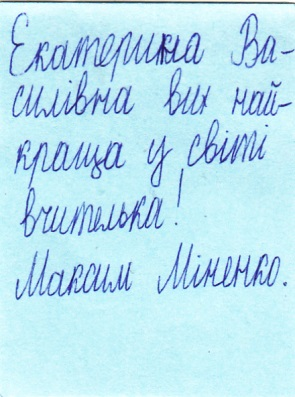 Екатерина Ва-
силівна вих най-
краща у світі
вчителька!
Максим Міненко.